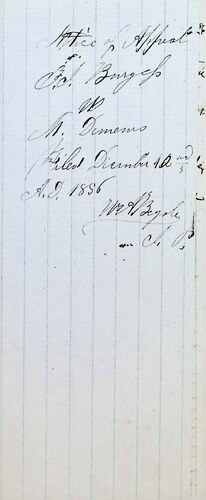 Notice of Appeal
J. A. Burgess
vs
M. Demens
Filed December 2nd
A.D. 1886
Wm Begole
J P